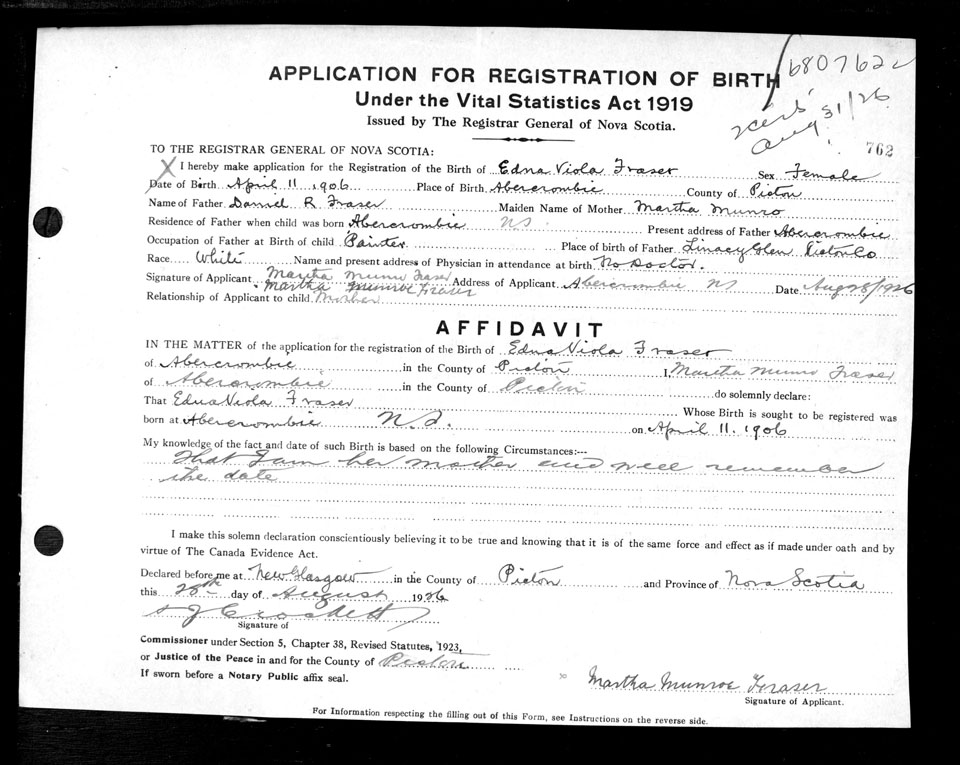 680762
APPLICATION FOR REGISTRATION OF BIRTH
Under the Vital Statistics Act 1919
Aug 31/26
Issued by The Registrar General of Nova Scotia.
762
TO THE REGISTRAR GENERAL OF NOVA SCOTIA:
X I hereby make application for the Registration of the Birth of Edna Viola Fraser Sex Female
Date of Birth April 11. 1906 Place of Birth Abercrombie County of Pictou
Name of Father Daniel R Fraser Maiden Name of Mother Martha Munro
Residence of Father when child was born Abercrombie NS. Present address of Father Abercrombie
Occupation of Father at Birth of child Painter. Place of birth of Father Linacy Glen Pictou Co
Race White Name and present address of Physician in attendance at birth No Doctor.
Signature of Applicant Martha Munro Fraser Address of Applicant Abercrombie NS Date Aug 28/1926
Martha Munroe Fraser
Relationship of Applicant to child Mother
AFFIDAVIT
IN THE MATTER of the application for the registration of the Birth of Edna Viola Fraser
of Abercrombie in the County of Pictou I, Martha Munro Fraser
of Abercrombie in the County of Pictou do solemnly declare:
That Edna Viola Fraser Whose Birth is sought to be registered was
born at Abercrombie N.S. on April 11. 1906
My knowledge of the fact and date of such Birth is based on the following Circumstances:---
That I am her mother and well remember
the date
I make this solemn declaration conscientiously believing it to be true and knowing that it is of the same force and effect as if made under oath and by
virtue of The Canada Evidence Act.
Declared before me at New Glasgow in the County of Pictou and Province of Nova Scotia
this 28th day of August 1926
S J Crockett
Signature of
Commissioner under Section 5, Chapter 38, Revised Statutes, 1923,
or Justice of the Peace in and for the County of Pictou
If sworn before a Notary Public affix seal.
x Martha Munroe Fraser
Signature of Applicant.
For Information respecting the filling out of this Form, see Instructions on the reverse side.